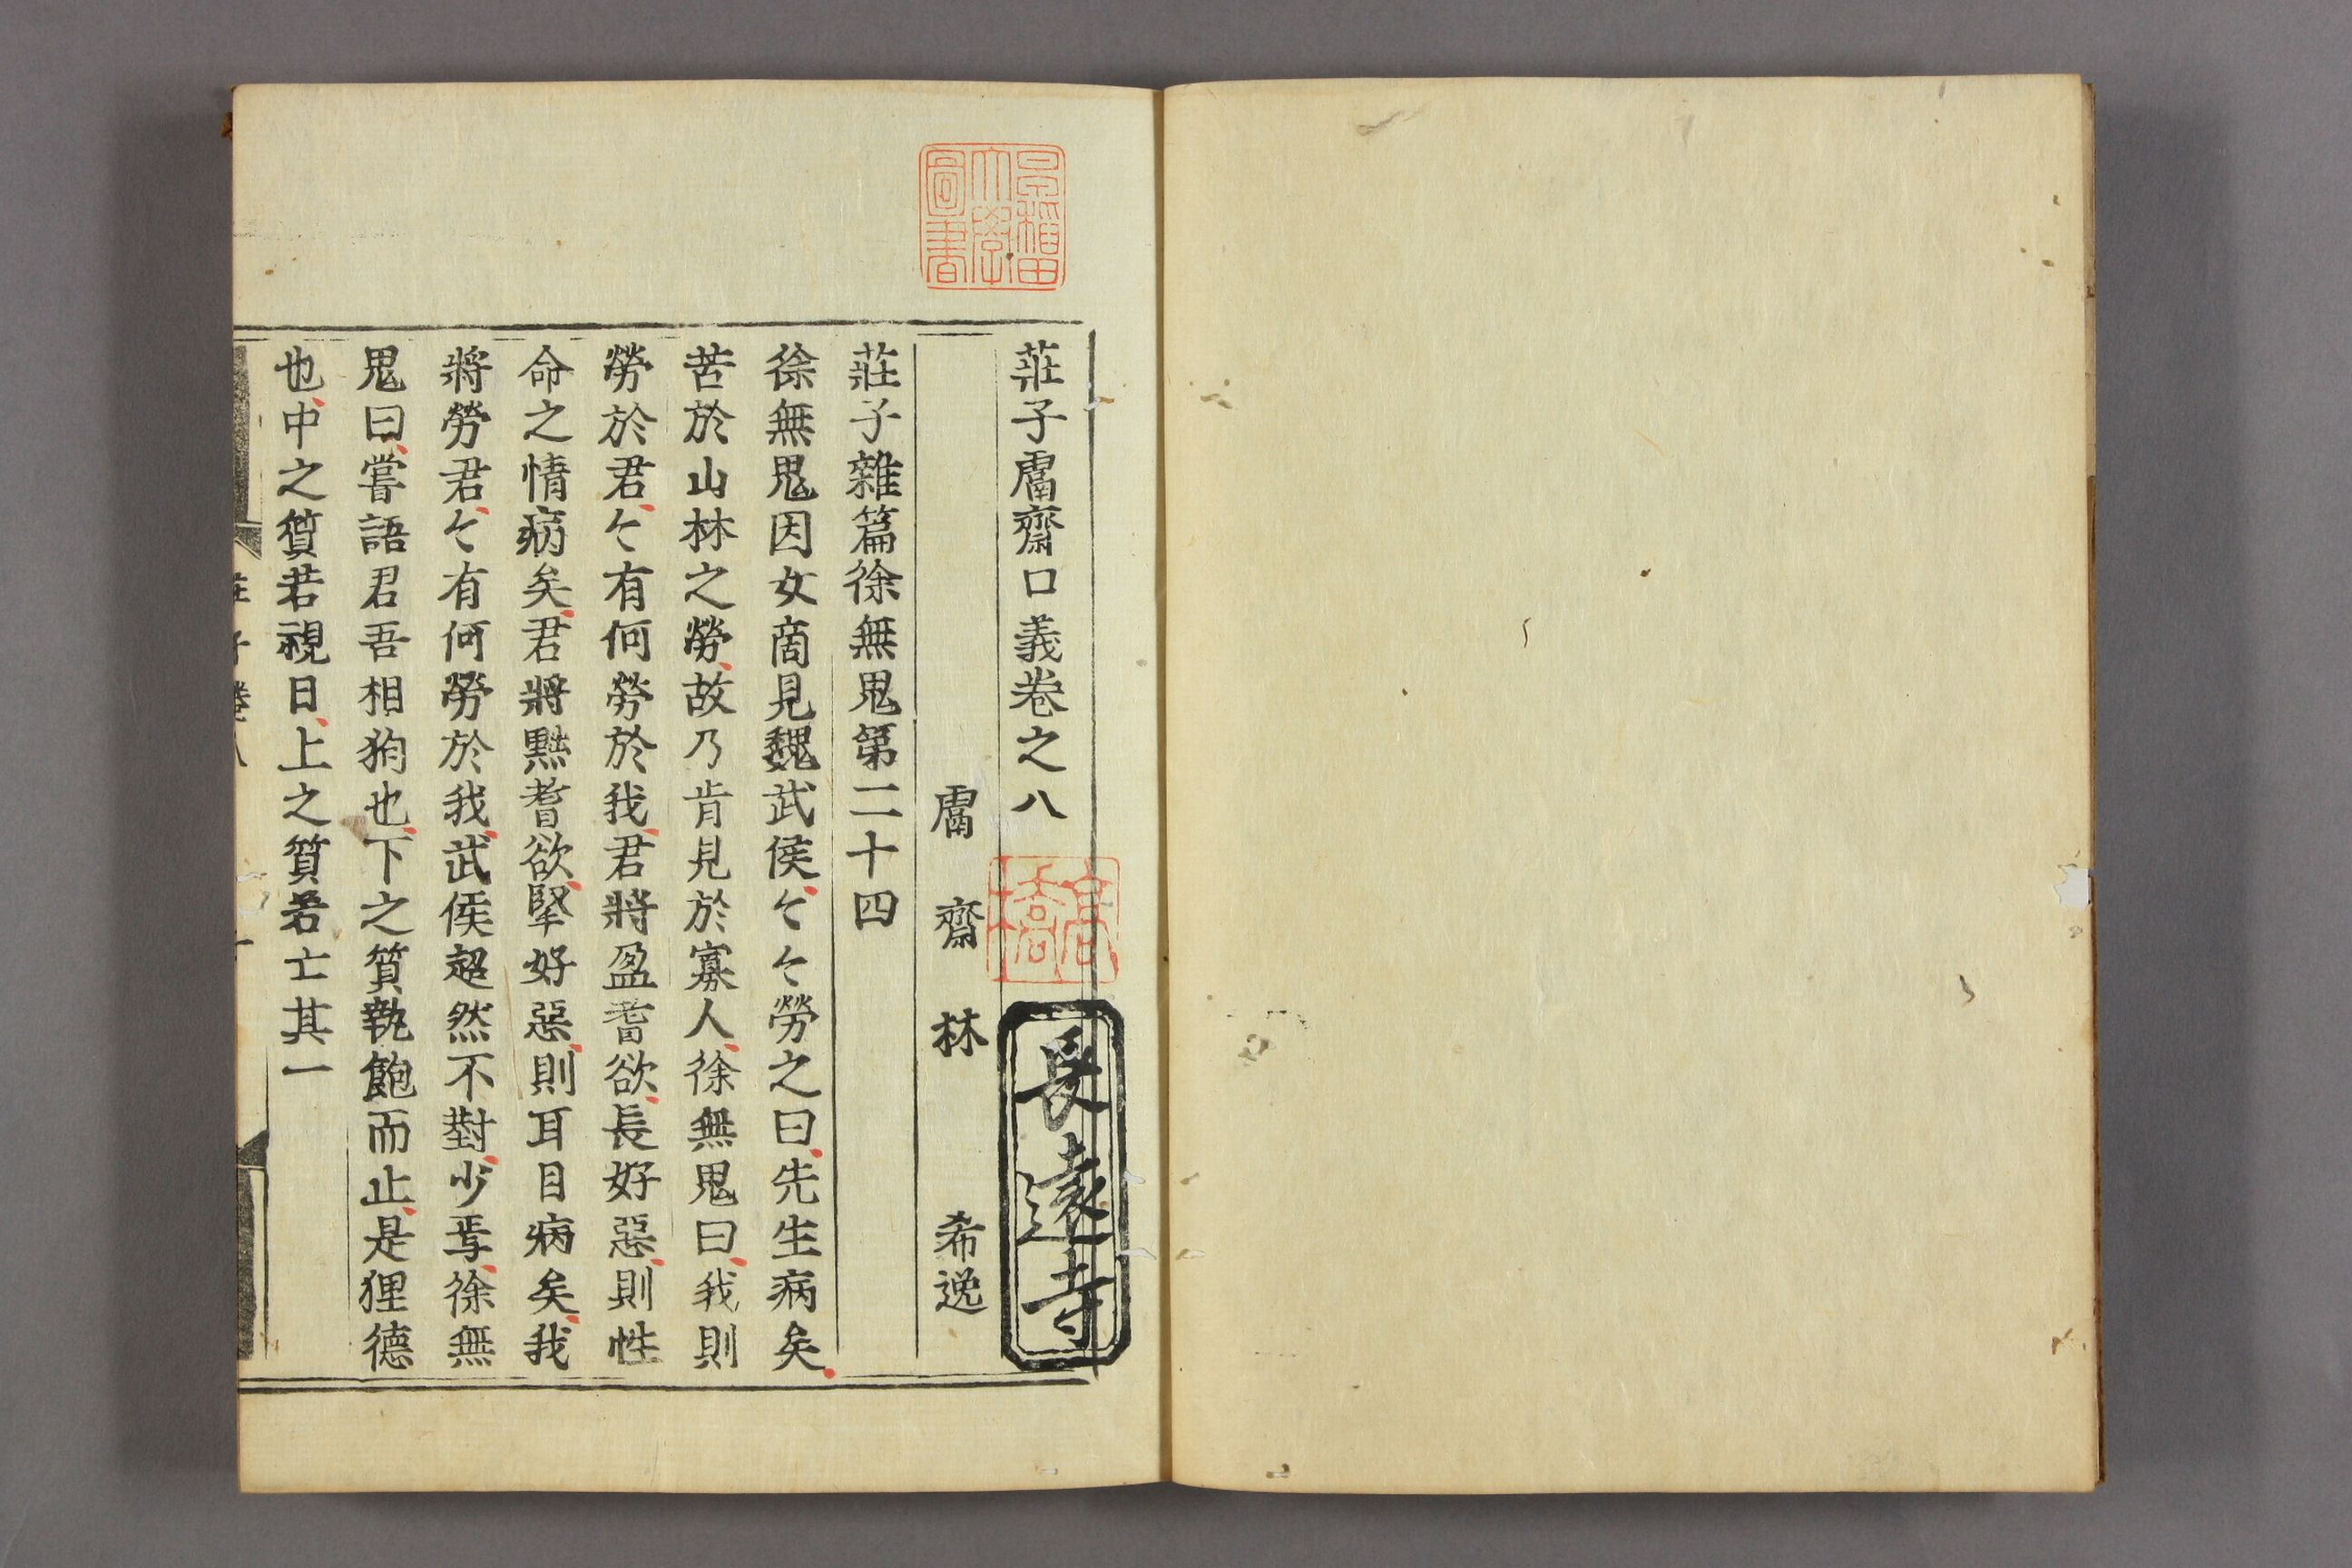 莊子鬳齋口義卷之八
鬳齋林希逸
莊子雜篇徐無鬼第二十四
徐無鬼因女商見魏武侯〻〻勞之曰先生病矣
苦於山林之勞故乃肯見於寡人徐無鬼曰我則
勞於君〻有何勞於我君將盈耆欲長好惡則性
命之情病矣君將黜耆欲掔好惡則耳目病矣我
將勞君〻有何勞於我武侯超然不對少焉徐無
鬼曰嘗語君吾相狗也下之質執飽而止是狸德
也中之質若視日上之質若亡其一
早稻田大學圖書
高橋
長遠寺